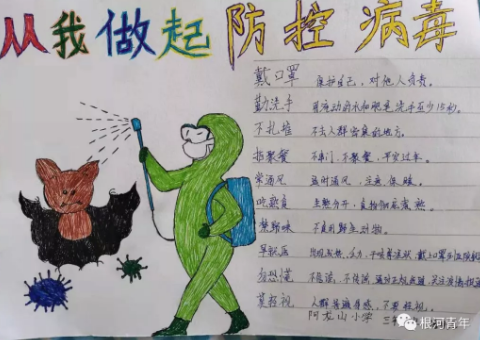 从我做起 防控病毒
戴口罩 保护自己，对他人负责。
勤洗手 用流动的水和肥皂洗手至少15秒。
不扎堆 不去人群密集的地方。
拒聚餐 不串门，不聚餐，平安过年。
常通风 适时通风，注意保暖。
吃熟食 生熟分开，食物彻底煮熟。
禁野味 不食用野生动物。
早就医
勿恐慌 不信谣，不传谣
莫轻视 人群普遍易感，不要轻视。
阿龙山小学 三
根河青年